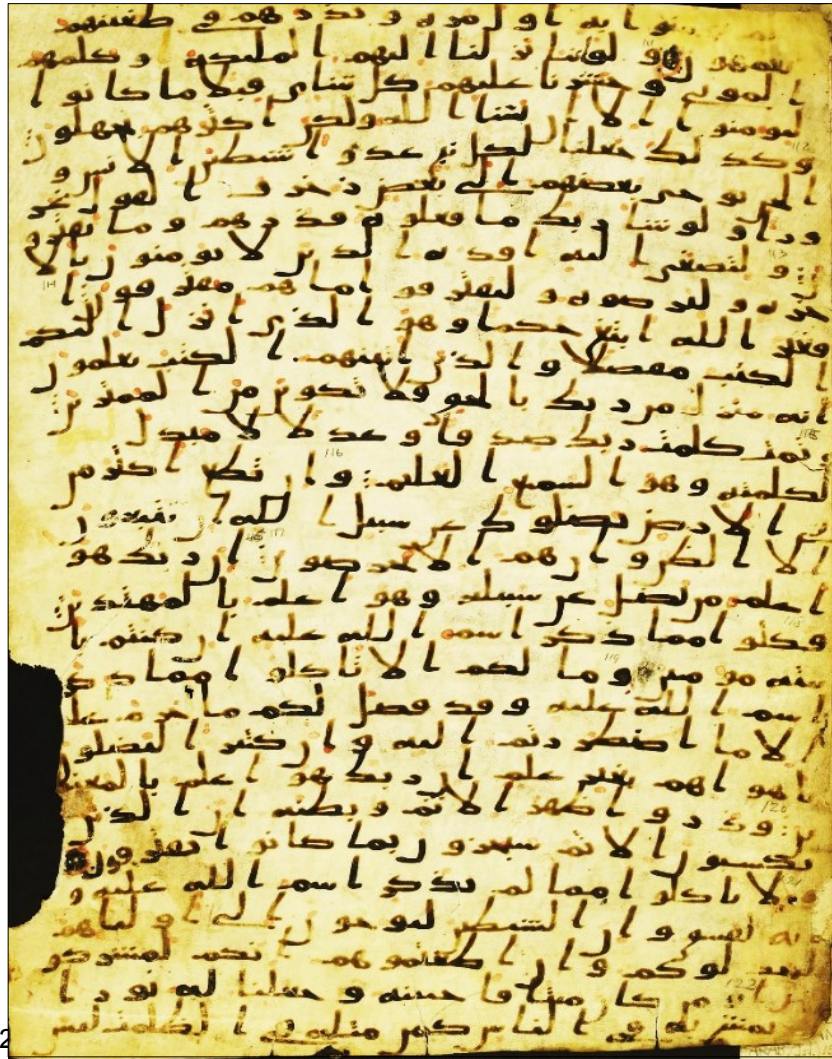 يومنوا به اول مرة ونذرهم في طغينهم
يعمهون ولو اننا نزلنا اليهم الملئكة وكلمهم
الموتى وحشرنا عليهم كل شاى قبلا ما كانوا
ليومنوا الا ان يشا الله ولكن اكثرهم يجهلون
وكذلك جعلنا لكل نبي عدوا شيطين الانس و
الجن يوحي بعضهم الى بعض زخرف القول غر
ورا ولو شا ربك ما فعلوه فذرهم وما يفترو
ن ولتصغى اليه افدة الذين لا يومنون بالا
خرة وليرضوه وليقترفوا ما هم مقترفون ا
فغير الله ابتغي حكما وهو الذي انزل اليكم
الكتب مفصلا والذين اتينهم الكتب يعلمون
انه منزل من ربك بالحق فلا تكونن من الممترين
وتمت كلمت ربك صدقا وعدلا لا مبدل
لكلمته وهو السميع العليم وان تطع اكثر من
في الارض يضلوك عن سبيل الله ان يتبعون
الا الظن وان هم الا يخرصون ان ربك هو
اعلم من يضل عن سبيله وهو اعلم بالمهتدين
فكلوا مما ذكر اسم الله عليه ان كنتم با
يته مومنين وما لكم الا تاكلوا مما ذكر
اسم الله عليه وقد فصل لكم ما حرم
الا ما اضطررتم اليه وان كثيرا ليضلون
باهواهم بغير علم ان ربك هو اعلم بالمعتد
ين وذروا ظهر الاثم وبطنه ان الذين
يكسبون الاثم سيجزون بما كانوا يقترفون
ولا تاكلوا مما لم يذكر اسم الله عليه و
انه لفسق وان الشيطين ليوحون الى اولياهم
ليجدلوكم وان اطعتموهم انكم لمشركون
اومن كان ميتا فاحيينه وجعلنا له نورا
يمشي به في الناس كمن مثله في الظلمت ليس
2